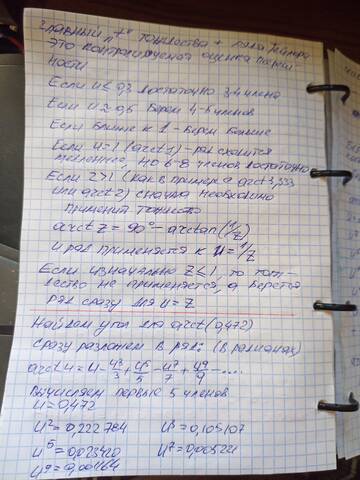 Главный "+" тождества + ряда Тейлора
это контролируемая оценка погреш-
ности
Если u ≤ 0,3 достаточно 3-4 члена
Если u ≈ 0,5 берем 4-6 членов
Если ближе к 1 - берем больше
Если u=1 (arct 1) - ряд сходится
медленнее, но 6-8 членов достаточно
Если z>1 (как в примере arct 3,333
или arct 2) сначала необходимо
применить тождество
arctg z = 90° - arctan(1/z)
и ряд применяется к u = 1/z
Если изначально z ≤ 1, то тож-
дество не применяется, а берется
ряд сразу для u = z
Найдем угол для arct(0,472)
сразу разложим в ряд: (в радианах)
arct u = u - u³/3 + u⁵/5 - u⁷/7 + u⁹/9 - ....
Вычисляем первые 5 членов
u = 0,472
u² = 0,222784 u³ = 0,105107
u⁵ = 0,023420 u⁷ = 0,005221
u⁹ = 0,001164